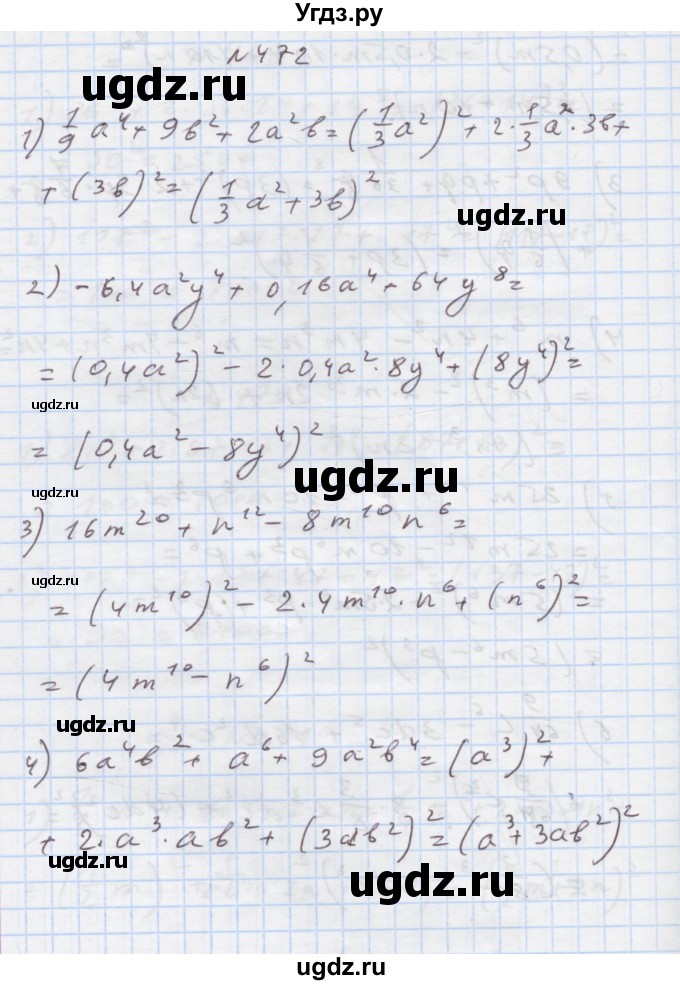 Угдз.ру
N472
ugdz.ru
1) 1/9 a⁴ + 9в² + 2a²в = (1/3 a²)² + 2·1/3 a²·3в +
+ (3в)² = (1/3 a² + 3в)²
ugdz.ru
2) - 6,4a²y⁴ + 0,16a⁴ + 64y⁸ =
= (0,4a²)² - 2·0,4a²·8y⁴ + (8y⁴)² =
ugdz.ru
= (0,4a² - 8y⁴)²
ugdz.ru
3) 16m²⁰ + n¹² - 8m¹⁰n⁶ =
ugdz.ru
= (4m¹⁰)² - 2·4m¹⁰·n⁶ + (n⁶)² =
= (4m¹⁰ - n⁶)²
ugdz.ru
4) 6a⁴в² + a⁶ + 9a²в⁴ = (a³)² +
+ 2·a³·aв² + (3aв²)² = (a³ + 3aв²)²
ugdz.ru
ugdz.ru
ugdz.ru